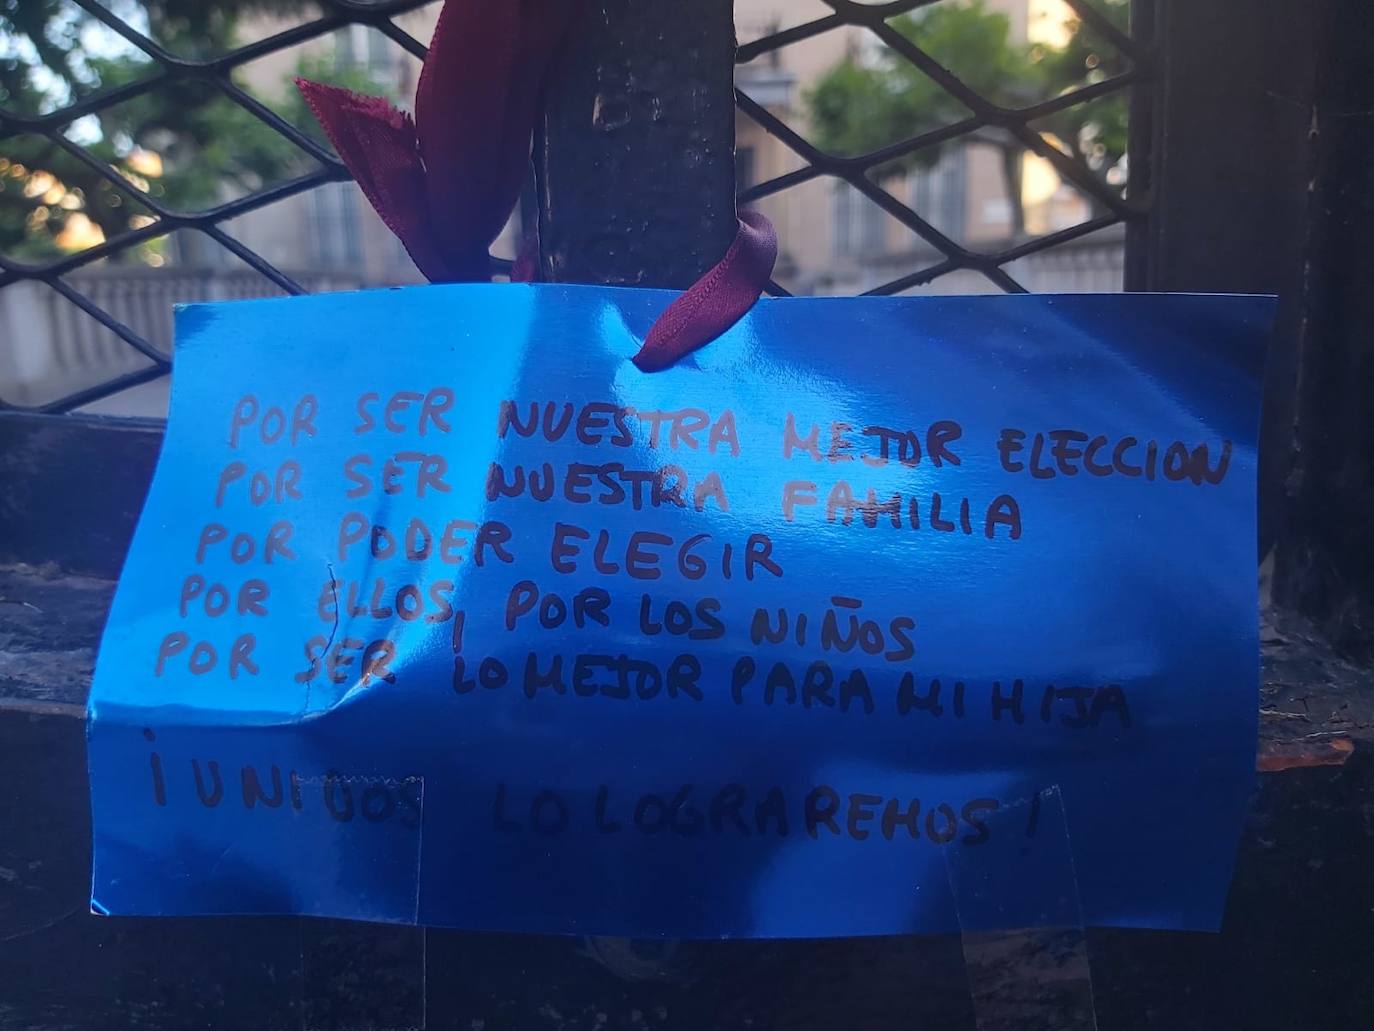 POR SER NUESTRA MEJOR ELECCION
POR SER NUESTRA FAMILIA
POR PODER ELEGIR
POR ELLOS, POR LOS NIÑOS
POR SER LO MEJOR PARA MI HIJA
¡UNIDOS LO LOGRAREMOS!